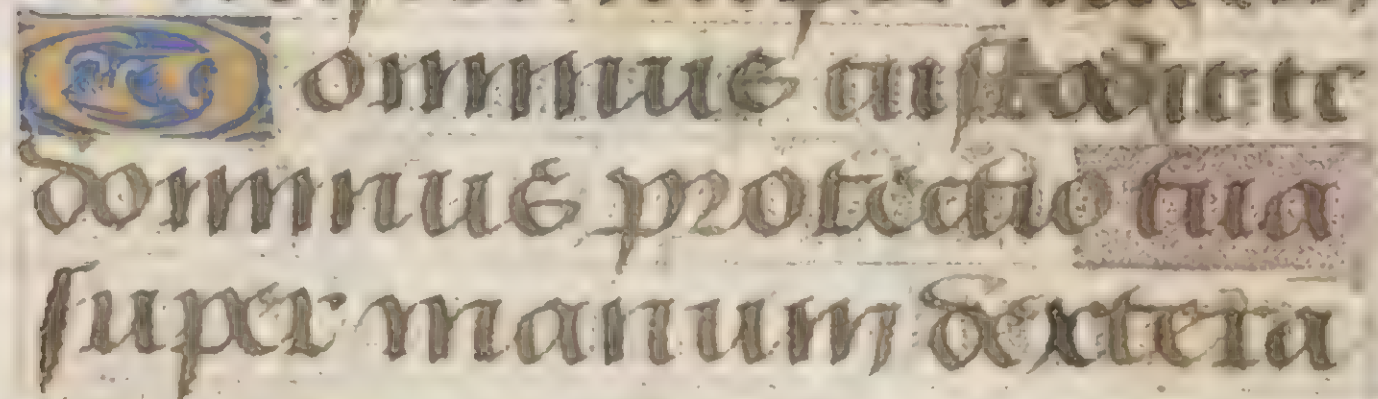 Dominus custodit te
dominus protectio tua
super manum dexterā